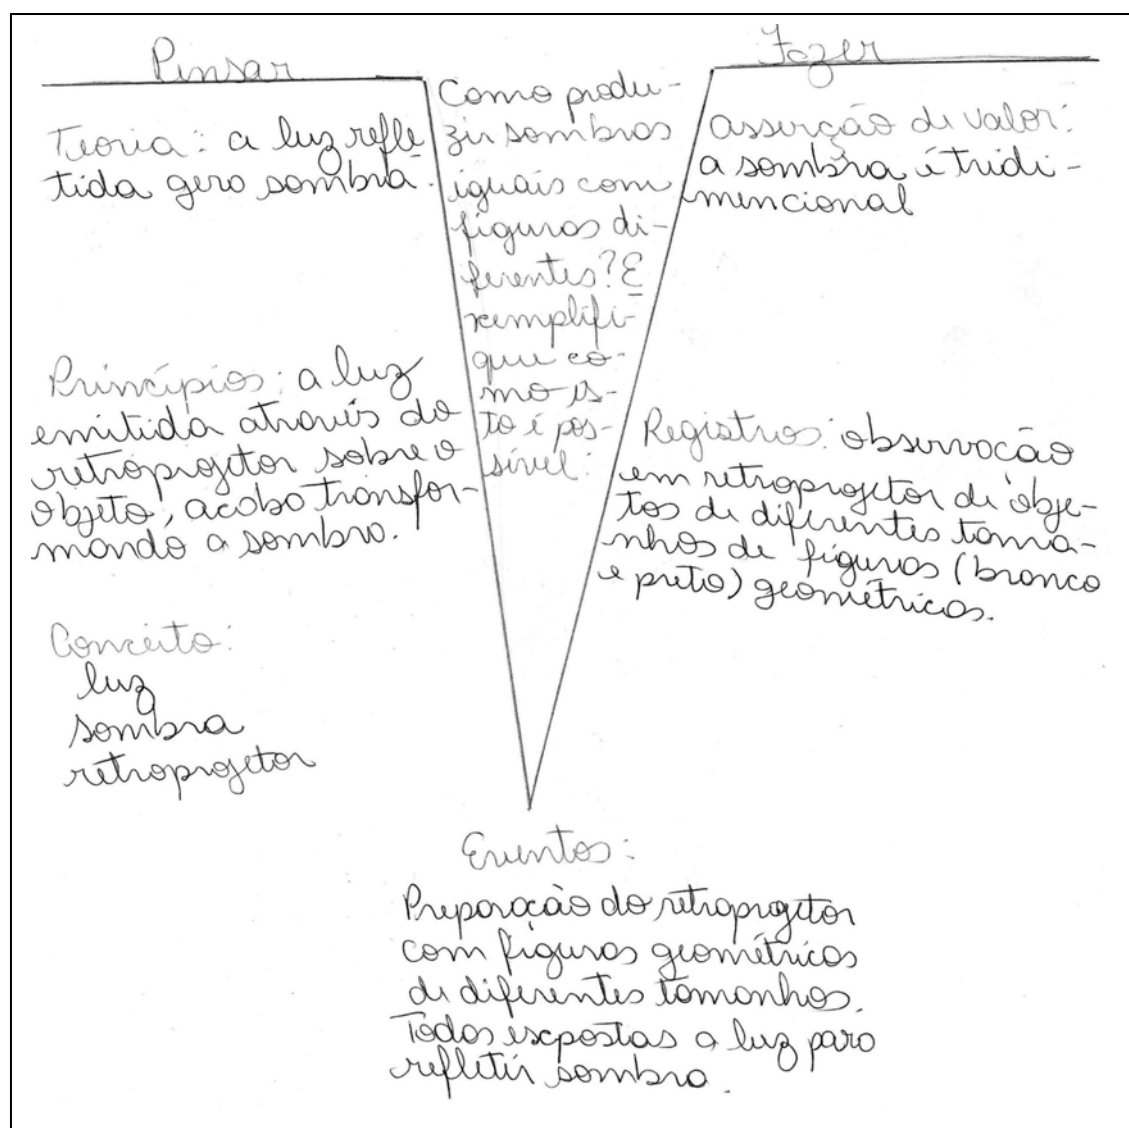 Pensar
Teoria: a luz refle-
tida gera sombra.
Princípios: a luz
emitida através do
retroprojetor sobre o
objeto, acaba transfor-
mando a sombra.
Conceito:
luz
sombra
retroprojetor
Como produ-
zir sombras
iguais com
figuras di-
ferentes? E
xemplifi-
que co-
mo is-
to é pos-
sível:
Fazer
asserção de valor:
a sombra é tridi-
mencional
Registros: observação
em retroprojetor de obje-
tos de diferentes tama-
nhos de figuras (branco
e preto) geométricas.
Eventos:
Preparação do retroprojetor
com figuras geométricas
de diferentes tamanhos.
Todas expostas a luz para
refletir sombra.